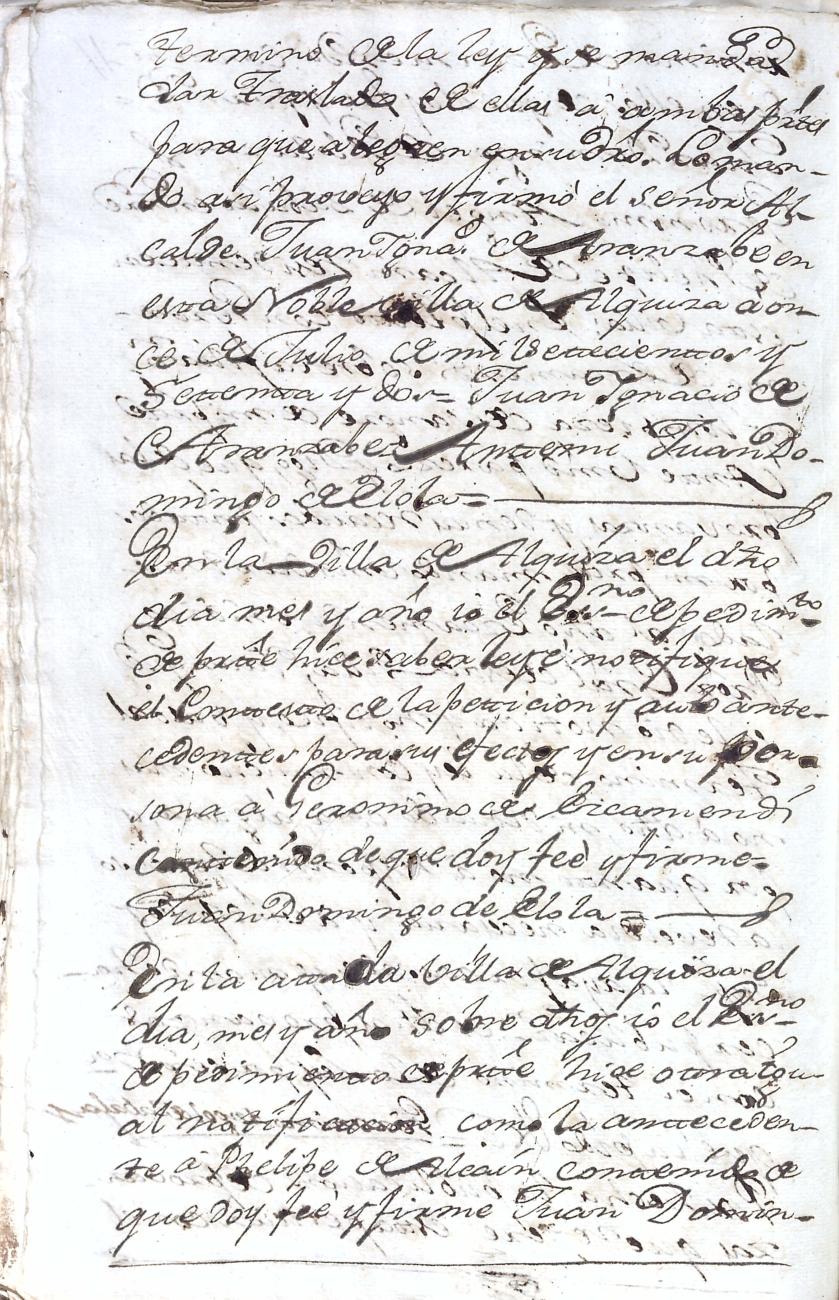 termino de la ley y se mandad
dar Traslado de ellas a ambas prtes
para que aleguen en su dro. Loman-
do asi proveyo y firmó el señor Al-
calde Juan Ygnaº de Aranzabe en
esta Noble villa de Alquiza a on-
ce de Julio de mil settecienttos y
Settentta y dos = Juan Ygnacio de
Aranzabe = Anttemi Juan Do-
mingo de Elola =
En la Villa de Alquiza el dho
dia mes y año io el Essno de pedimto
de prtte hice saber ley è notifique
el Conttextto de la petticion y autto antte-
cedenttes para sus efectos y en su per-
sona a Geronimo de Ercamendi
conttenido de que doy feè y firme =
Juan Domingo de Elola =
En la cittada Villa de Alquiza el
dia, mes y año sobre dhos io el Essno
de pedimientto de partte hice ottra igu-
al nottificacion como la antteceden-
te à Phelipe de Alcain conttenido de
que doy feè y firme Juan Domin-